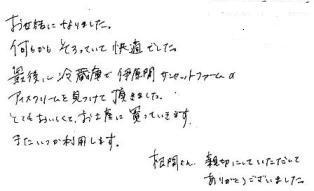 お世話になりました。
何もかもそろっていて快適でした。
最後に冷蔵庫で伊良湖サンセットファームの
アイスクリームを見つけて頂きました。
とてもおいしくて、お土産に買っていきます。
またいつか利用します。
相間さん 親切にしていただいて
ありがとうございました。